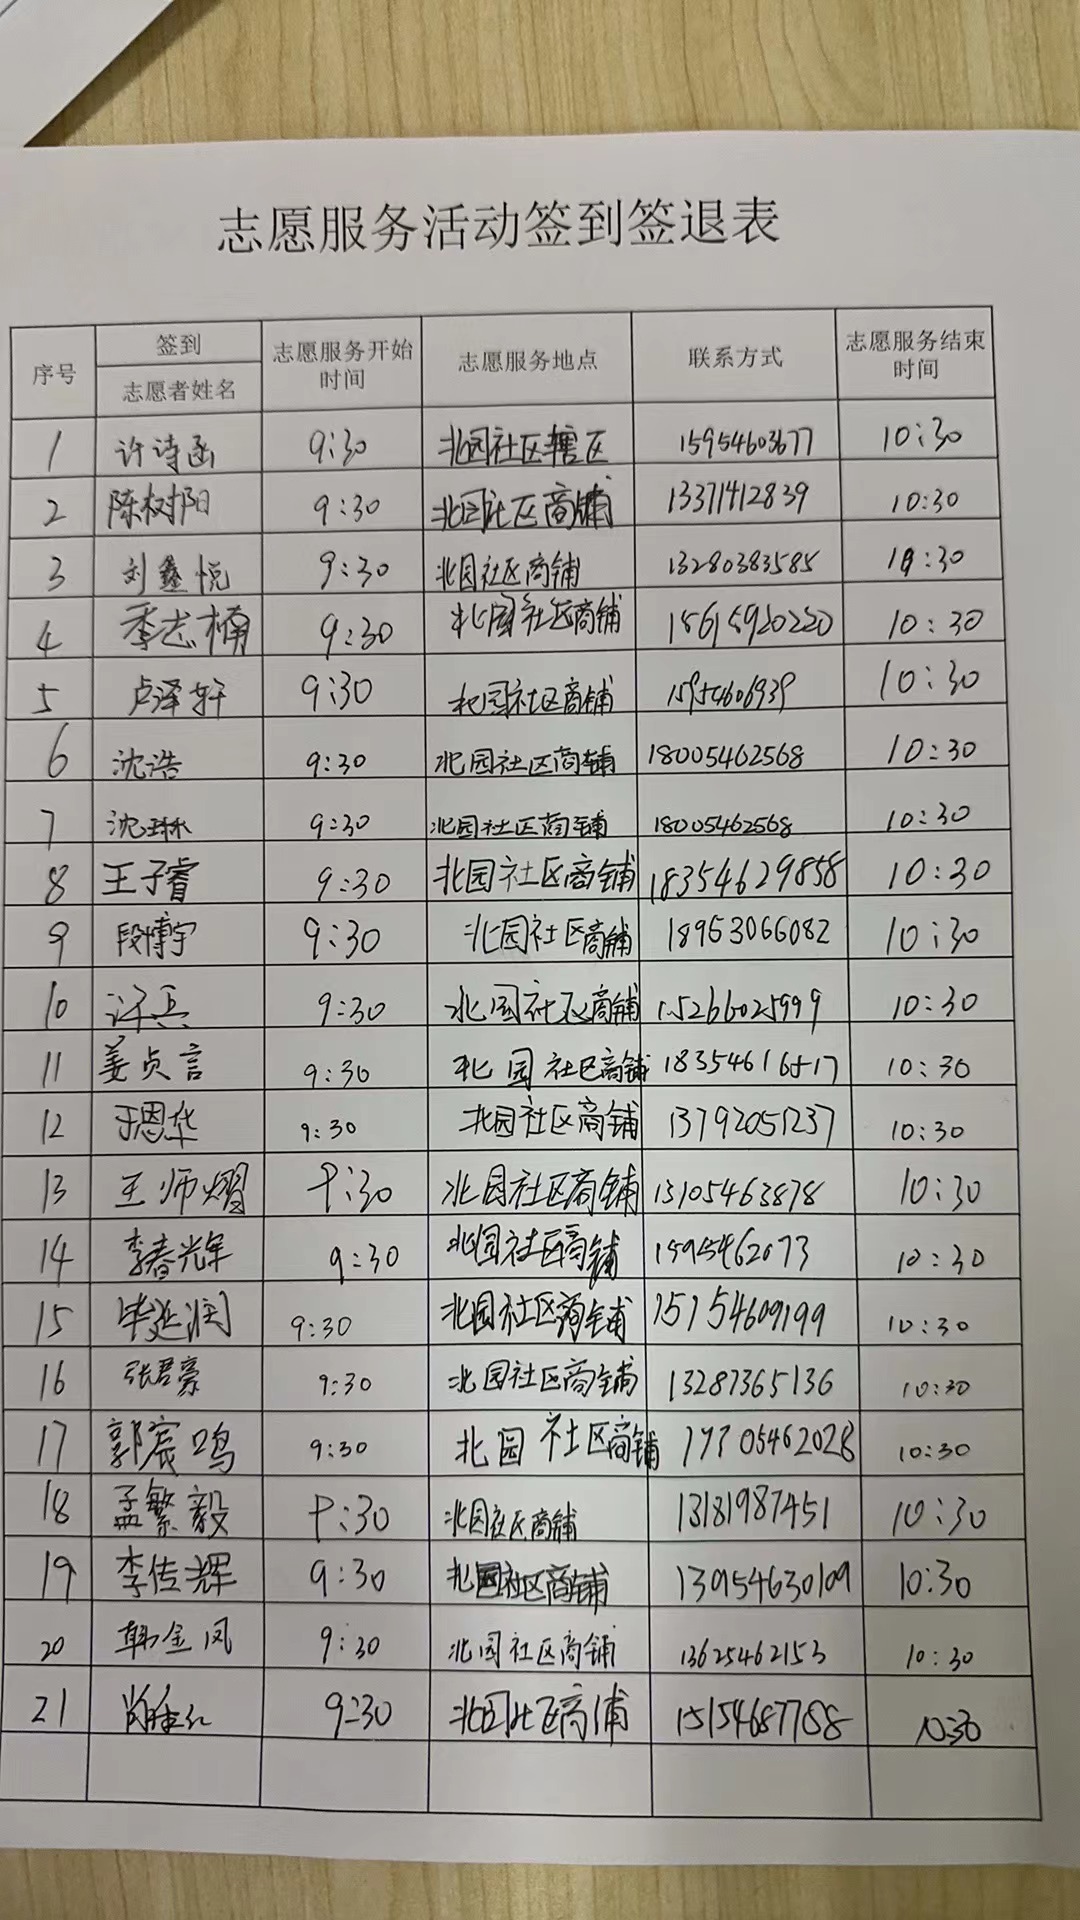 志愿服务活动签到签退表
序号 签到 志愿者姓名 志愿服务开始时间 志愿服务地点 联系方式 志愿服务结束时间
1 许诗函 9:30 北园社区辖区 15954603677 10:30
2 陈树阳 9:30 北园社区商铺 13371412839 10:30
3 刘鑫悦 9:30 北园社区商铺 13280383585 10:30
4 季志楠 9:30 北园社区商铺 15615920220 10:30
5 卢泽轩 9:30 北园社区商铺 15954606939 10:30
6 沈浩 9:30 北园社区商铺 18005462568 10:30
7 沈琳 9:30 北园社区商铺 18005462568 10:30
8 王子睿 9:30 北园社区商铺 18354629858 10:30
9 段博宇 9:30 北园社区商铺 18953066082 10:30
10 许兵 9:30 北园社区商铺 15266025999 10:30
11 姜贞言 9:30 北园社区商铺 10:30
12 于恩华 9:30 北园社区商铺 13792051237 10:30
13 王师熠 9:30 北园社区商铺 13105463878 10:30
14 李春光军 9:30 北园社区商铺 1595462073 10:30
15 毕延润 9:30 北园社区商铺 15154609199 10:30
16 张君豪 9:30 北园社区商铺 13287365136 10:30
17 郭宸鸣 9:30 北园社区商铺 10:30
18 孟繁毅 9:30 北园社区商铺 13181987451 10:30
19 李传辉 9:30 北园社区商铺 13954630109 10:30
20 韩金凤 9:30 北园社区商铺 13625462153 10:30
21 9:30 北园社区商铺 15154687788 10:30